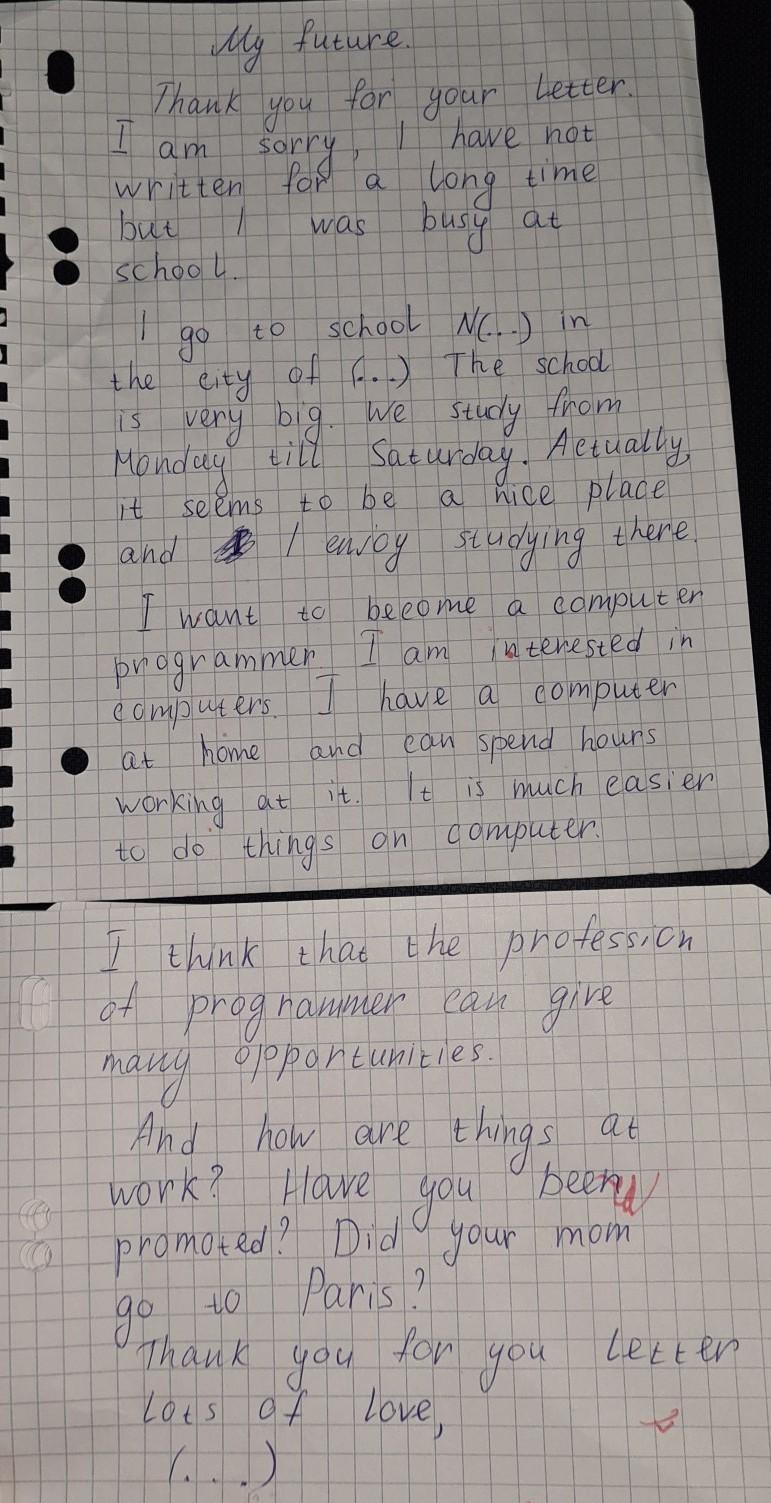 My future.
Thank you for your letter.
I am sorry, I have not
written for a long time
but I was busy at
school.
I go to school N(...) in
the city of (...) The school
is very big. We study from
Monday till Saturday. Actually,
it seems to be a nice place
and I enjoy studying there.
I want to become a computer
programmer. I am interested in
computers. I have a computer
at home and can spend hours
working at it. It is much easier
to do things on computer.
I think that the profession
of programmer can give
many opportunities.
And how are things at
work? Have you been
promoted? Did your mom
go to Paris?
Thank you for you letter
Lots of love,
(...)